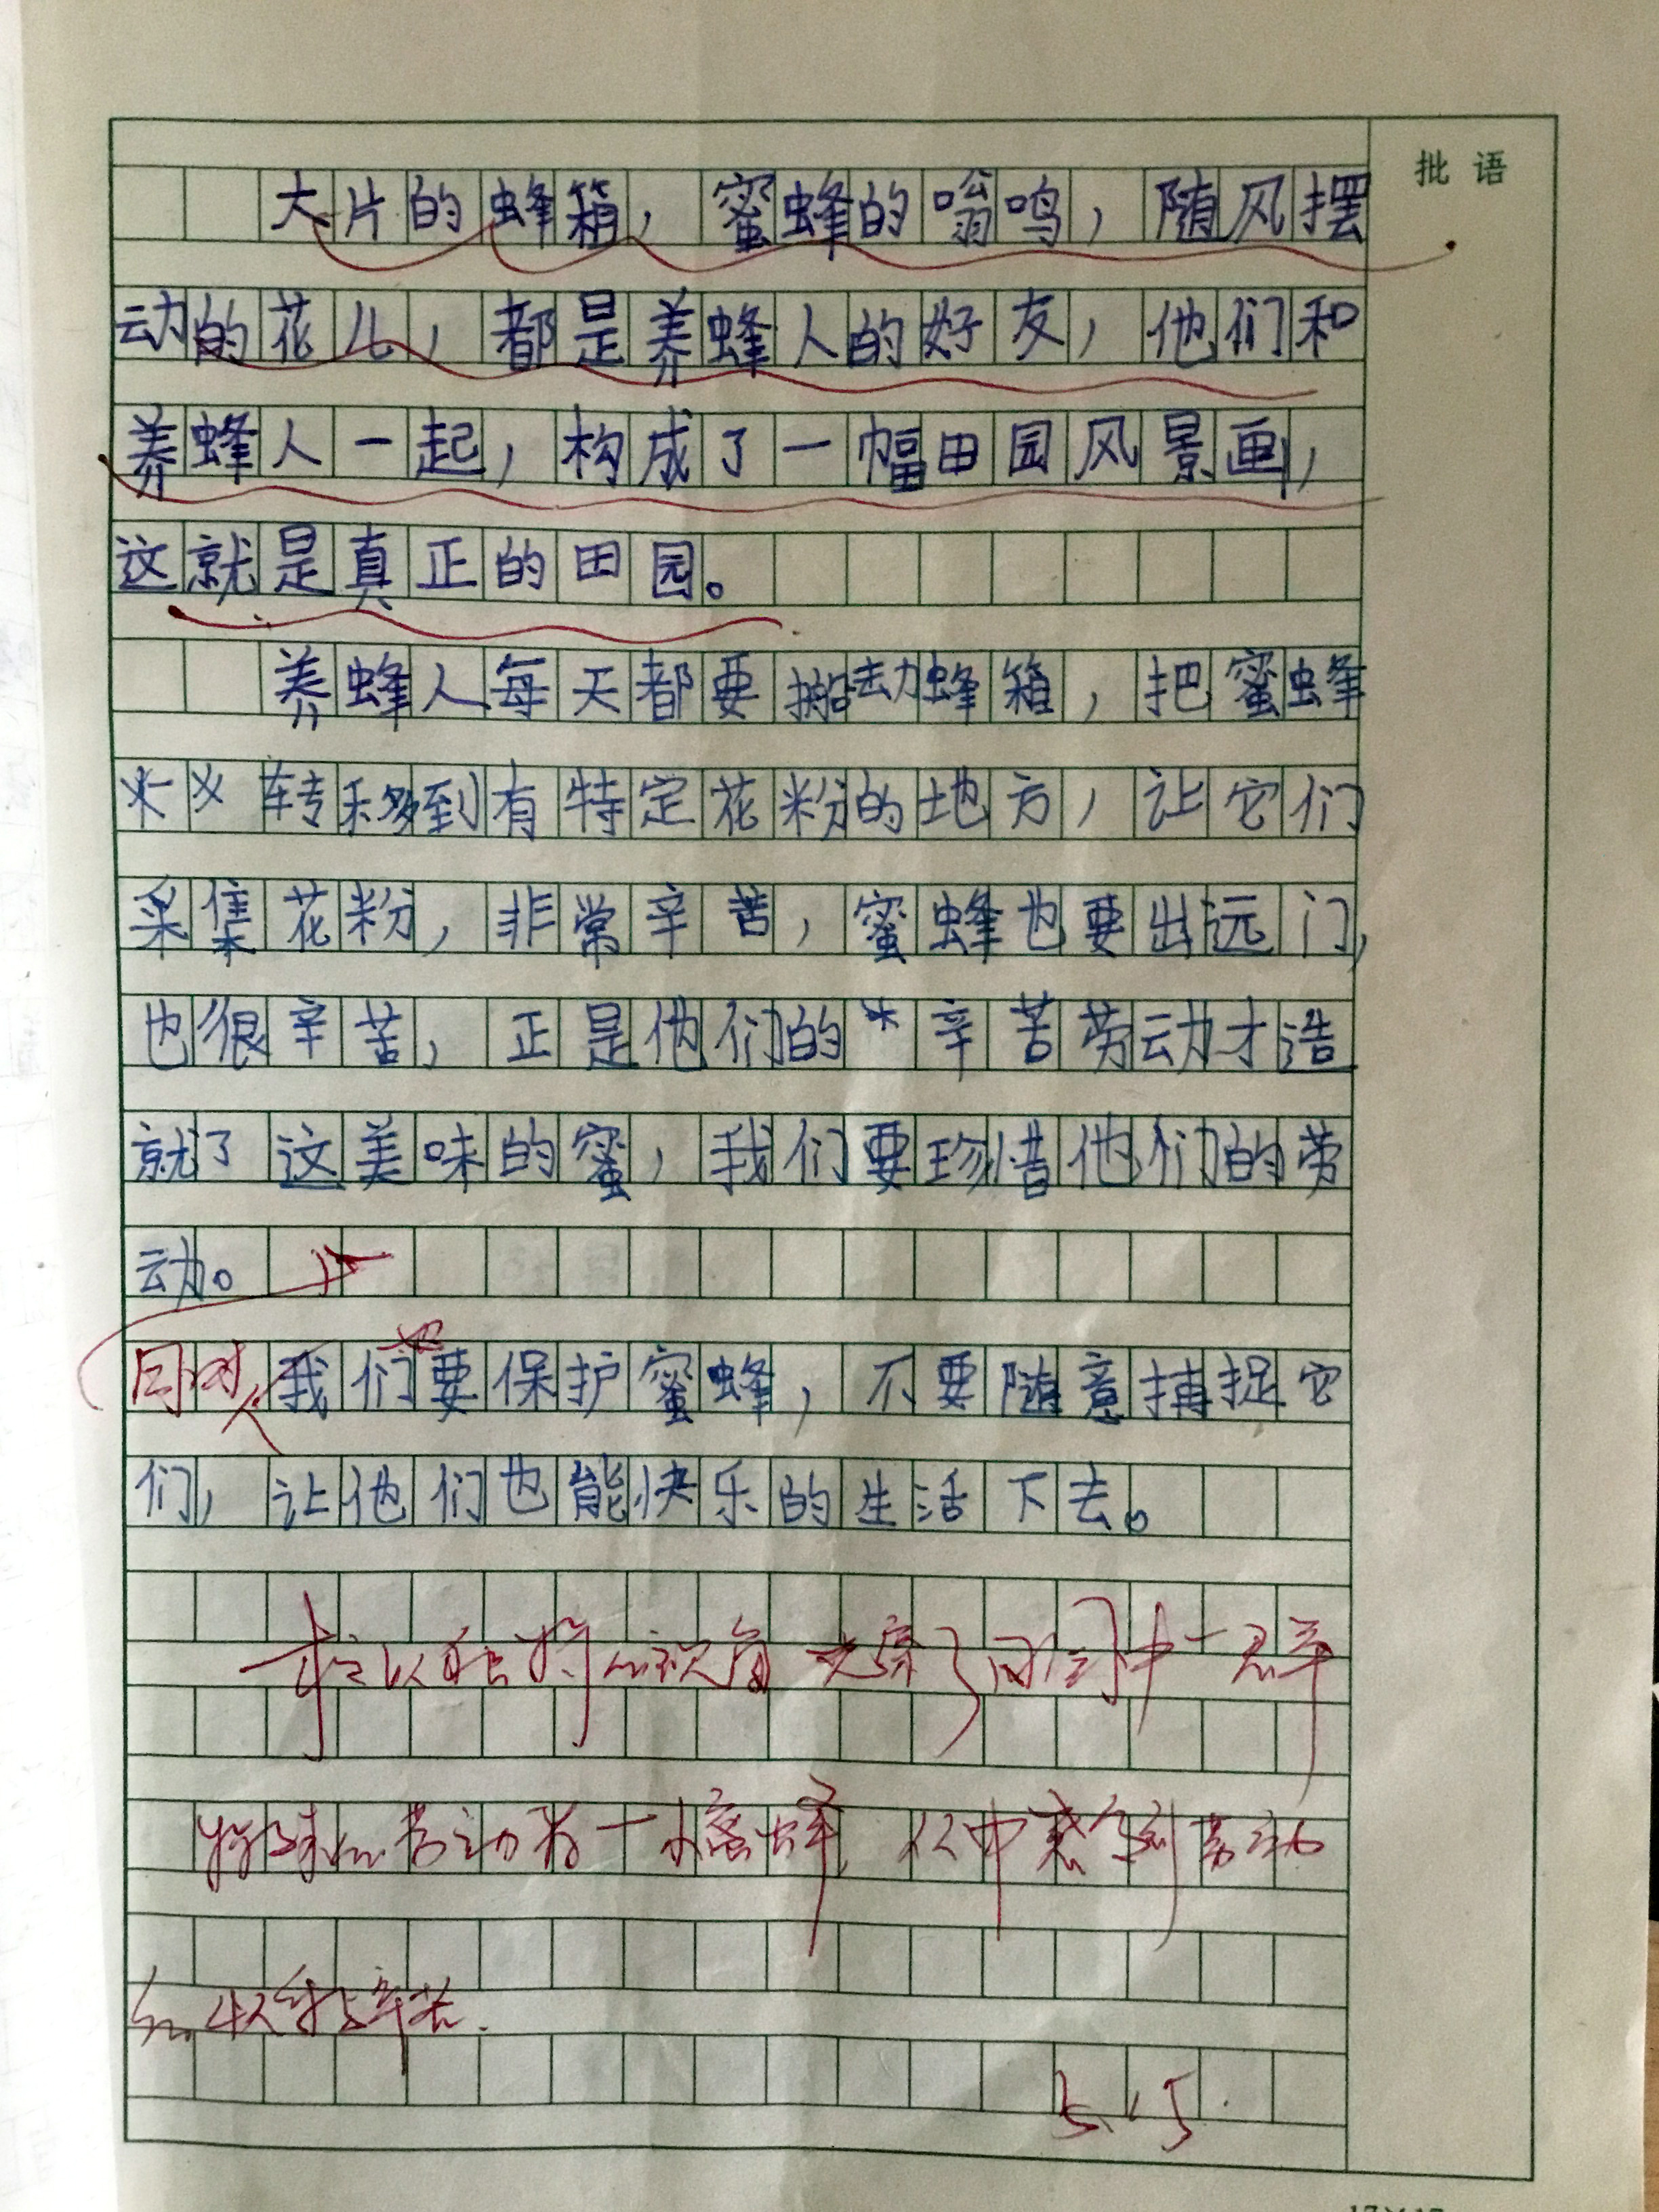 批语
大片的蜂箱，蜜蜂的嗡鸣，随风摆
动的花儿，都是养蜂人的好友，他们和
养蜂人一起，构成了一幅田园风景画，
这就是真正的田园。
养蜂人每天都要搬动蜂箱，把蜜蜂
转移到有特定花粉的地方，让它们
采集花粉，非常辛苦，蜜蜂也要出远门，
也很辛苦，正是他们的辛苦劳动才造
就了这美味的蜜，我们要珍惜他们的劳
动。
同时，我们也要保护蜜蜂，不要随意捕捉它
们，让他们也能快乐的生活下去。
劳动者一小蜜蜂，从中感受到劳动
辛苦.
5.15.